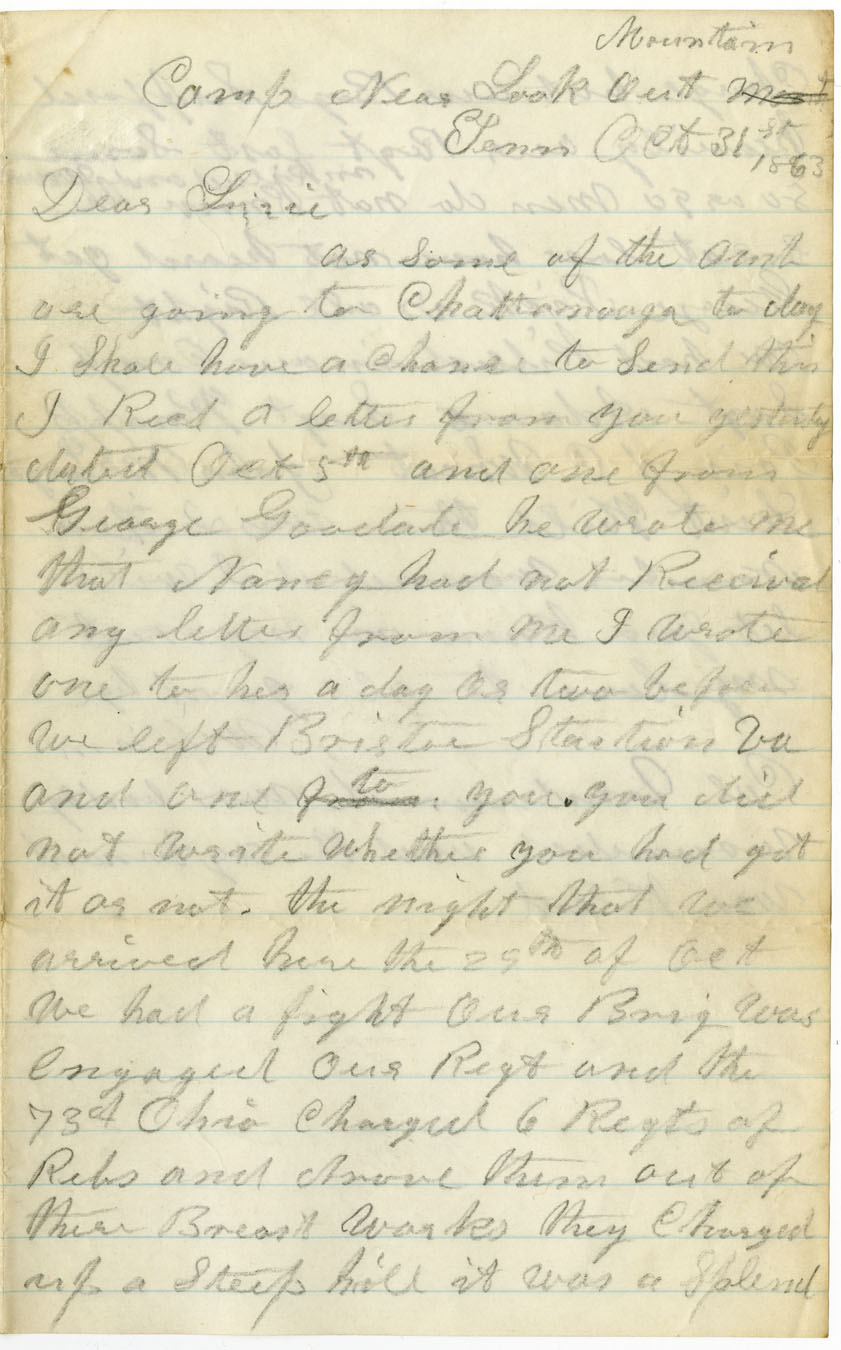 Mountain
Camp Near Look Out Mont
Tenn Oct 31st
1863
Dear Lizzie
as some of the Amt
are going to Chattanooga to day
I Shall have a Chance to Send this
I Recd a letter from you yesterday
dated Oct 5th and one from
George Goodale he wrote me
that Nancy had not Received
any letter from me I wrote
one to her a day or two before
we left Bristoe Stastion Va
and one from to you. you did
not write whether you had got
it or not. the night that we
arrived here the 29th of Oct
We had a fight Our Brig was
Engaged Our Regt and the
73d Ohio Charged 6 Regts of
Rebs and drove them out of
there Breast works they Charged
up a Steep hill it was a Splend